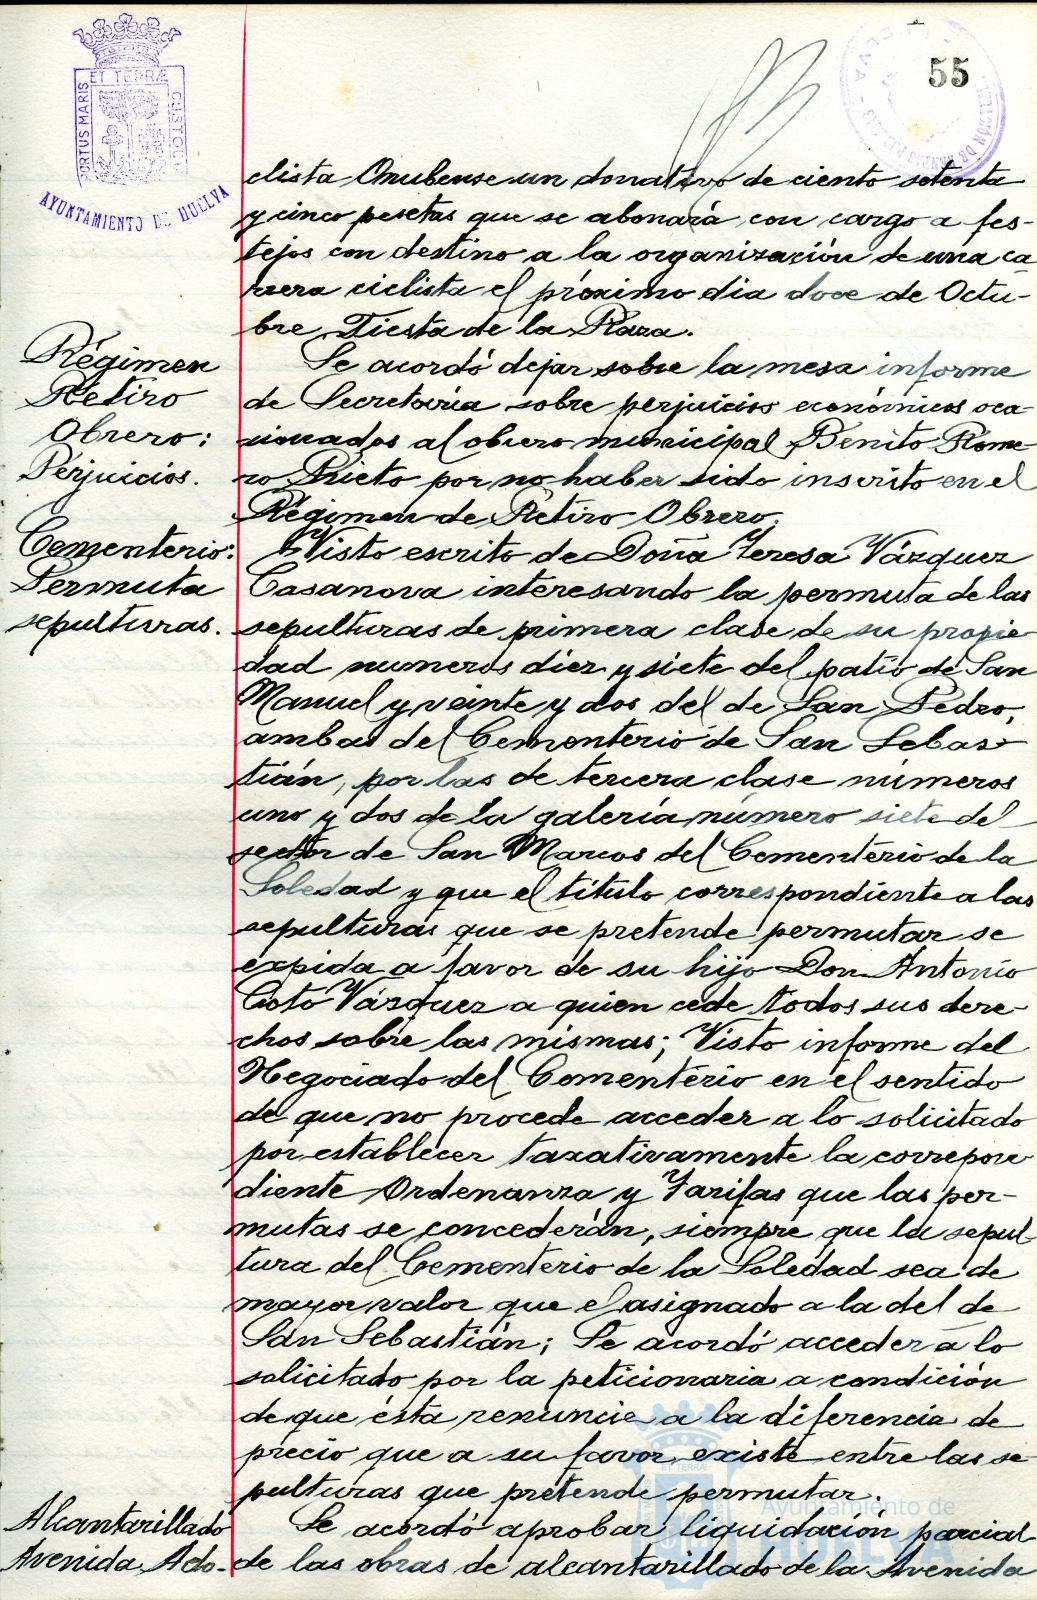 55
ET TERRÆ
PORTUS MARIS
CUSTODIA
AYUNTAMIENTO DE HUELVA
clista Onubense un donativo de ciento setenta
y cinco pesetas que se abonará con cargo a fes-
tejos con destino a la organización de una ca
rrera ciclista el próximo dia doce de Octu-
bre, Fiesta de la Raza.
Régimen
Retiro
Obrero:
Perjuicios.
Se acordó dejar sobre la mesa informe
de Secretaría sobre perjuicios económicos oca
sionados al obrero municipal Benito Rome-
ro Prieto por no haber sido inscrito en el
Régimen de Retiro Obrero.
Cementerio:
Permuta
sepulturas.
Visto escrito de Doña Teresa Vázquez
Casanova interesando la permuta de las
sepulturas de primera clase de su propie
dad numeros diez y siete del patio de San
Manuel y veinte y dos del de San Pedro,
ambas del Cementerio de San Sebas-
tián, por las de tercera clase números
uno y dos de la galería número siete del
sector de San Marcos del Cementerio de la
Soledad y que el título correspondiente a las
sepulturas que se pretende permutar se
expida a favor de su hijo Don Antonio
Coto Vázquez a quien cede todos sus dere-
chos sobre las mismas; Visto informe del
Negociado del Cementerio en el sentido
de que no procede acceder a lo solicitado
por establecer taxativamente la correpon
diente Ordenanza y Tarifas que las per-
mutas se concederán, siempre que la sepul-
tura del Cementerio de la Soledad sea de
mayor valor que el asignado a la del de
San Sebastián; Se acordó acceder a lo
solicitado por la peticionaria a condición
de que ésta renuncie a la diferencia de
precio que a su favor existe entre las se
pulturas que pretende permutar.
Alcantarillado
Avenida Ado-
Se acordó aprobar liquidación parcial
de las obras de alcantarillado de la Avenida
Ayuntamiento de
HUELVA